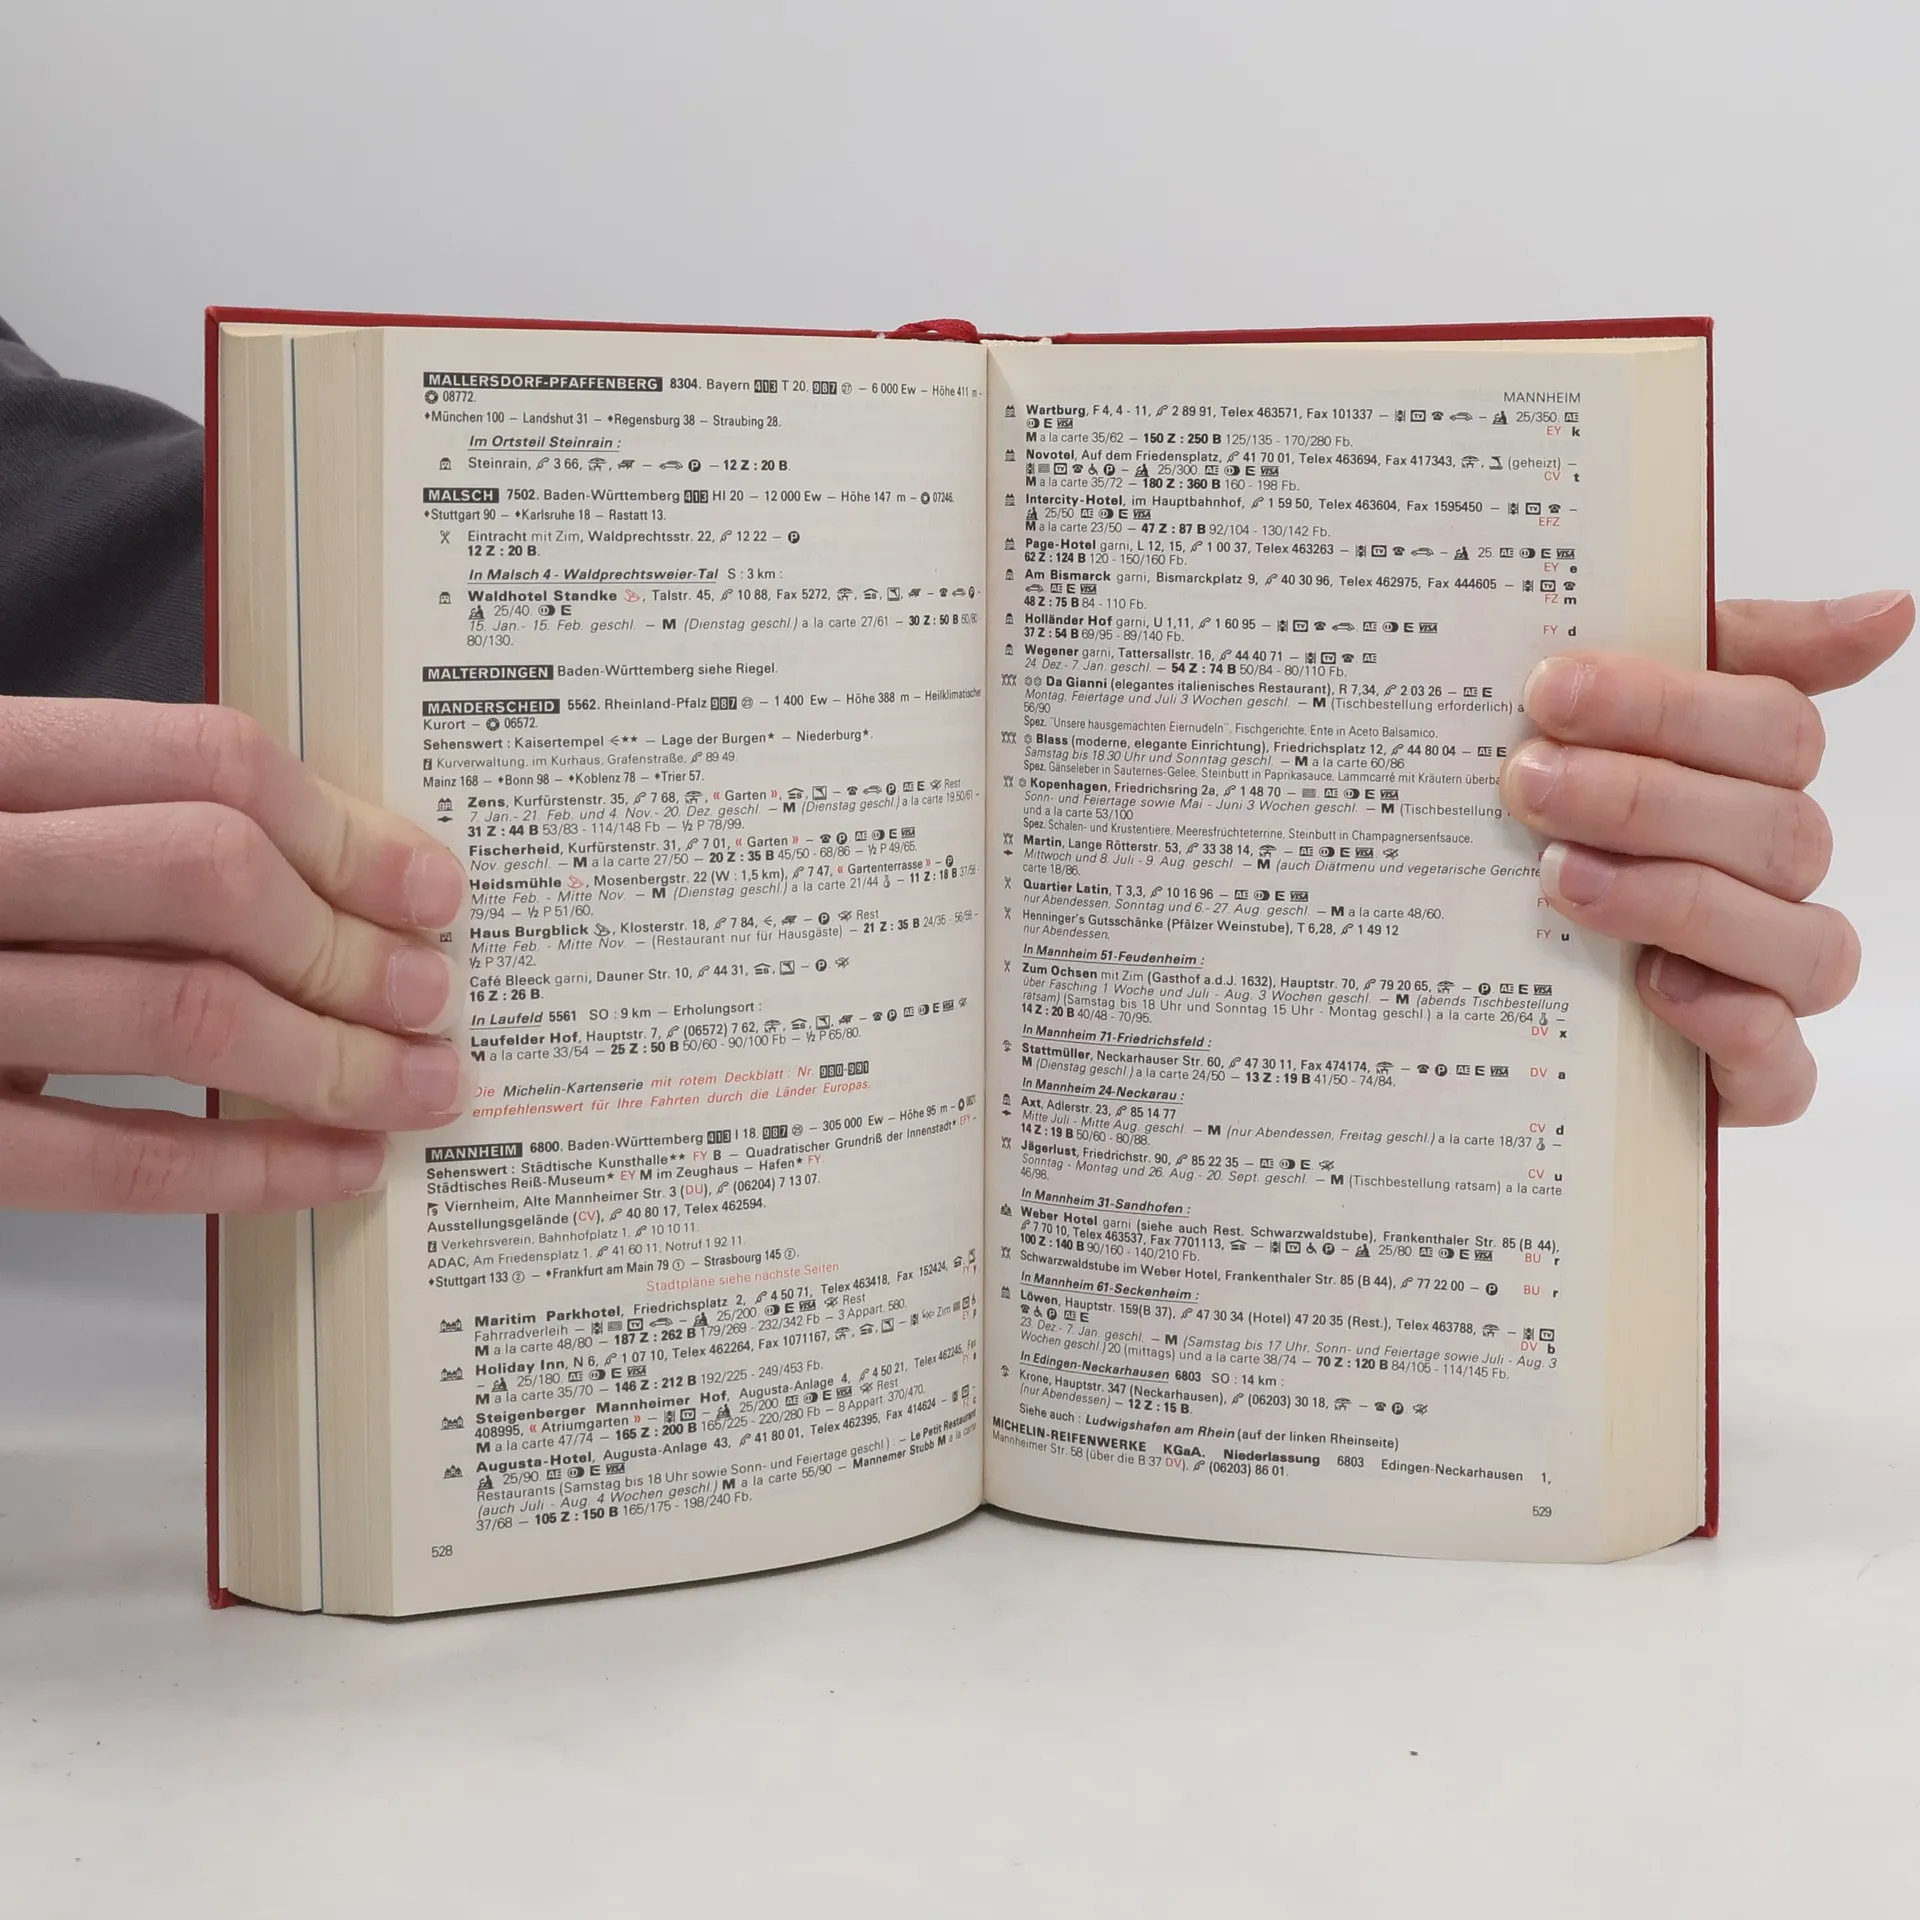 MALLERSDORF-PFAFFENBERG 8304. Bayern 413 T 20, 987 27 – 6 000 Ew – Höhe 411 m -
08772.
♦München 100 – Landshut 31 – ♦Regensburg 38 – Straubing 28.
Im Ortsteil Steinrain :
Steinrain, 3 66, – 12 Z : 20 B.
MALSCH 7502. Baden-Württemberg 413 HI 20 – 12 000 Ew – Höhe 147 m – 07246.
♦Stuttgart 90 – ♦Karlsruhe 18 – Rastatt 13.
Eintracht mit Zim, Waldprechtsstr. 22, 12 22 – P
12 Z : 20 B.
In Malsch 4 - Waldprechtsweier-Tal S : 3 km :
Waldhotel Standke, Talstr. 45, 10 88, Fax 5272,
25/40. E
15. Jan.- 15. Feb. geschl. – M (Dienstag geschl.) a la carte 27/61 – 30 Z : 50 B 60/80
80/130.
MALTERDINGEN Baden-Württemberg siehe Riegel.
MANDERSCHEID 5562. Rheinland-Pfalz 987 23 – 1 400 Ew – Höhe 388 m – Heilklimatischer
Kurort – 06572.
Sehenswert : Kaisertempel <** – Lage der Burgen* – Niederburg*.
Kurverwaltung, im Kurhaus, Grafenstraße, 89 49.
Mainz 168 – ♦Bonn 98 – ♦Koblenz 78 – ♦Trier 57.
Zens, Kurfürstenstr. 35, 7 68, « Garten », – P AE E Rest
7. Jan.- 21. Feb. und 4. Nov.- 20. Dez. geschl. – M (Dienstag geschl.) a la carte 19.50/61 –
31 Z : 44 B 53/83 - 114/148 Fb – ½ P 78/99.
Fischerheid, Kurfürstenstr. 31, 7 01, « Garten » – P AE E VISA
Nov. geschl. – M a la carte 27/50 – 20 Z : 35 B 45/50 - 68/86 – ½ P 49/65.
Heidsmühle, Mosenbergstr. 22 (W : 1,5 km), 7 47, « Gartenterrasse » – P
Mitte Feb. - Mitte Nov. – M (Dienstag geschl.) a la carte 21/44 – 11 Z : 18 B 37/56 -
79/94 – ½ P 51/60.
Haus Burgblick, Klosterstr. 18, 7 84, <, – P Rest
Mitte Feb. - Mitte Nov. – (Restaurant nur für Hausgäste) – 21 Z : 35 B 24/35 - 56/59 –
½ P 37/42.
Café Bleeck garni, Dauner Str. 10, 44 31, – P
16 Z : 26 B.
In Laufeld 5561 SO : 9 km – Erholungsort :
Laufelder Hof, Hauptstr. 7, (06572) 7 62, – P AE E VISA
M a la carte 33/54 – 25 Z : 50 B 50/60 - 90/100 Fb – ½ P 65/80.
Die Michelin-Kartenserie mit rotem Deckblatt : Nr. 980-991
empfehlenswert für Ihre Fahrten durch die Länder Europas.
MANNHEIM 6800. Baden-Württemberg 413 I 18, 987 25 – 305 000 Ew – Höhe 95 m –
Sehenswert : Städtische Kunsthalle** FY B – Quadratischer Grundriß der Innenstadt* EFY –
Städtisches Reiß-Museum* EY M im Zeughaus – Hafen* FY.
Viernheim, Alte Mannheimer Str. 3 (DU), (06204) 7 13 07.
Ausstellungsgelände (CV), 40 80 17, Telex 462594.
Verkehrsverein, Bahnhofplatz 1, 10 10 11.
ADAC, Am Friedensplatz 1, 41 60 11, Notruf 1 92 11.
♦Stuttgart 133 ② – ♦Frankfurt am Main 79 ① – Strasbourg 145 ②.
Stadtpläne siehe nächste Seiten
Maritim Parkhotel, Friedrichsplatz 2, 4 50 71, Telex 463418, Fax 152424,
Fahrradverleih – TV – 25/200. E VISA Rest
M a la carte 48/80 – 187 Z : 262 B 179/269 - 232/342 Fb – 3 Appart. 580.
Holiday Inn, N 6, 1 07 10, Telex 462264, Fax 1071167, – Zim
– 25/180. AE E VISA
M a la carte 35/70 – 146 Z : 212 B 192/225 - 249/453 Fb.
Steigenberger Mannheimer Hof, Augusta-Anlage 4, 4 50 21, Telex 462245, Fax
408995, « Atriumgarten » – TV – 25/200. AE E VISA Rest
M a la carte 47/74 – 165 Z : 200 B 165/225 - 220/280 Fb – 8 Appart. 370/470.
Augusta-Hotel, Augusta-Anlage 43, 41 80 01, Telex 462395, Fax 414624 –
25/90. AE E VISA
Restaurants (Samstag bis 18 Uhr sowie Sonn- und Feiertage geschl.) : – Le Petit Restaurant
(auch Juli - Aug. 4 Wochen geschl.) M a la carte 55/90 – Mannemer Stubb M a la carte
37/68 – 105 Z : 150 B 165/175 - 198/240 Fb.
528
MANNHEIM
Wartburg, F 4, 4 - 11, 2 89 91, Telex 463571, Fax 101337 – TV – 25/350. AE
E VISA EY k
M a la carte 35/62 – 150 Z : 250 B 125/135 - 170/280 Fb.
Novotel, Auf dem Friedensplatz, 41 70 01, Telex 463694, Fax 417343, (geheizt) –
TV P – 25/300. AE E VISA CV t
M a la carte 35/72 – 180 Z : 360 B 160 - 198 Fb.
Intercity-Hotel, im Hauptbahnhof, 1 59 50, Telex 463604, Fax 1595450 – TV –
25/50. AE E VISA EFZ
M a la carte 23/50 – 47 Z : 87 B 92/104 - 130/142 Fb.
Page-Hotel garni, L 12, 15, 1 00 37, Telex 463263 – TV – 25. AE E VISA
62 Z : 124 B 120 - 150/160 Fb. EY e
Am Bismarck garni, Bismarckplatz 9, 40 30 96, Telex 462975, Fax 444605 – TV
AE E VISA FZ m
48 Z : 75 B 84 - 110 Fb.
Holländer Hof garni, U 1,11, 1 60 95 – TV AE E VISA FY d
37 Z : 54 B 69/95 - 89/140 Fb.
Wegener garni, Tattersallstr. 16, 44 40 71 – TV AE
24. Dez.- 7. Jan. geschl. – 54 Z : 74 B 50/84 - 80/110 Fb.
Da Gianni (elegantes italienisches Restaurant), R 7,34, 2 03 26 – AE E
Montag, Feiertage und Juli 3 Wochen geschl. – M (Tischbestellung erforderlich) a
56/90
Spez. "Unsere hausgemachten Eiernudeln", Fischgerichte, Ente in Aceto Balsamico.
Blass (moderne, elegante Einrichtung), Friedrichsplatz 12, 44 80 04 – AE E
Samstag bis 18.30 Uhr und Sonntag geschl. – M a la carte 60/86
Spez. Gänseleber in Sauternes-Gelee, Steinbutt in Paprikasauce, Lammcarré mit Kräutern überba
Kopenhagen, Friedrichsring 2a, 1 48 70 – AE E VISA
Sonn- und Feiertage sowie Mai - Juni 3 Wochen geschl. – M (Tischbestellung
und a la carte 53/100
Spez. Schalen- und Krustentiere, Meeresfrüchteterrine, Steinbutt in Champagnersenfsauce.
Martin, Lange Rötterstr. 53, 33 38 14, – AE E VISA
Mittwoch und 8. Juli - 9. Aug. geschl. – M (auch Diätmenu und vegetarische Gerichte
carte 18/86.
Quartier Latin, T 3,3, 10 16 96 – AE E VISA
nur Abendessen, Sonntag und 6.- 27. Aug. geschl. – M a la carte 48/60. FY
Henninger's Gutsschänke (Pfälzer Weinstube), T 6,28, 1 49 12
nur Abendessen, FY u
In Mannheim 51-Feudenheim :
Zum Ochsen mit Zim (Gasthof a.d.J. 1632), Hauptstr. 70, 79 20 65, – P AE E VISA
über Fasching 1 Woche und Juli - Aug. 3 Wochen geschl. – M (abends Tischbestellung
ratsam) (Samstag bis 18 Uhr und Sonntag 15 Uhr - Montag geschl.) a la carte 26/64 –
14 Z : 20 B 40/48 - 70/95. DV x
In Mannheim 71-Friedrichsfeld :
Stattmüller, Neckarhauser Str. 60, 47 30 11, Fax 474174, – P AE E VISA DV a
M (Dienstag geschl.) a la carte 24/50 – 13 Z : 19 B 41/50 - 74/84.
In Mannheim 24-Neckarau :
Axt, Adlerstr. 23, 85 14 77 CV d
Mitte Juli - Mitte Aug. geschl. – M (nur Abendessen, Freitag geschl.) a la carte 18/37 –
14 Z : 19 B 50/60 - 80/88.
Jägerlust, Friedrichstr. 90, 85 22 35 – AE E CV u
Sonntag - Montag und 26. Aug.- 20. Sept. geschl. – M (Tischbestellung ratsam) a la carte
46/98.
In Mannheim 31-Sandhofen :
Weber Hotel garni (siehe auch Rest. Schwarzwaldstube), Frankenthaler Str. 85 (B 44),
7 70 10, Telex 463537, Fax 7701113, – TV P – 25/80. AE E VISA BU r
100 Z : 140 B 90/160 - 140/210 Fb.
Schwarzwaldstube im Weber Hotel, Frankenthaler Str. 85 (B 44), 77 22 00 – P BU r
In Mannheim 61-Seckenheim :
Löwen, Hauptstr. 159(B 37), 47 30 34 (Hotel) 47 20 35 (Rest.), Telex 463788, – TV
P AE E DV b
23. Dez.- 7. Jan. geschl. – M (Samstag bis 17 Uhr, Sonn- und Feiertage sowie Juli - Aug. 3
Wochen geschl.) 20 (mittags) und a la carte 38/74 – 70 Z : 120 B 84/105 - 114/145 Fb.
In Edingen-Neckarhausen 6803 SO : 14 km :
Krone, Hauptstr. 347 (Neckarhausen), (06203) 30 18, – P
(nur Abendessen) – 12 Z : 15 B.
Siehe auch : Ludwigshafen am Rhein (auf der linken Rheinseite)
MICHELIN-REIFENWERKE KGaA. Niederlassung 6803 Edingen-Neckarhausen 1,
Mannheimer Str. 58 (über die B 37 DV), (06203) 86 01.
529